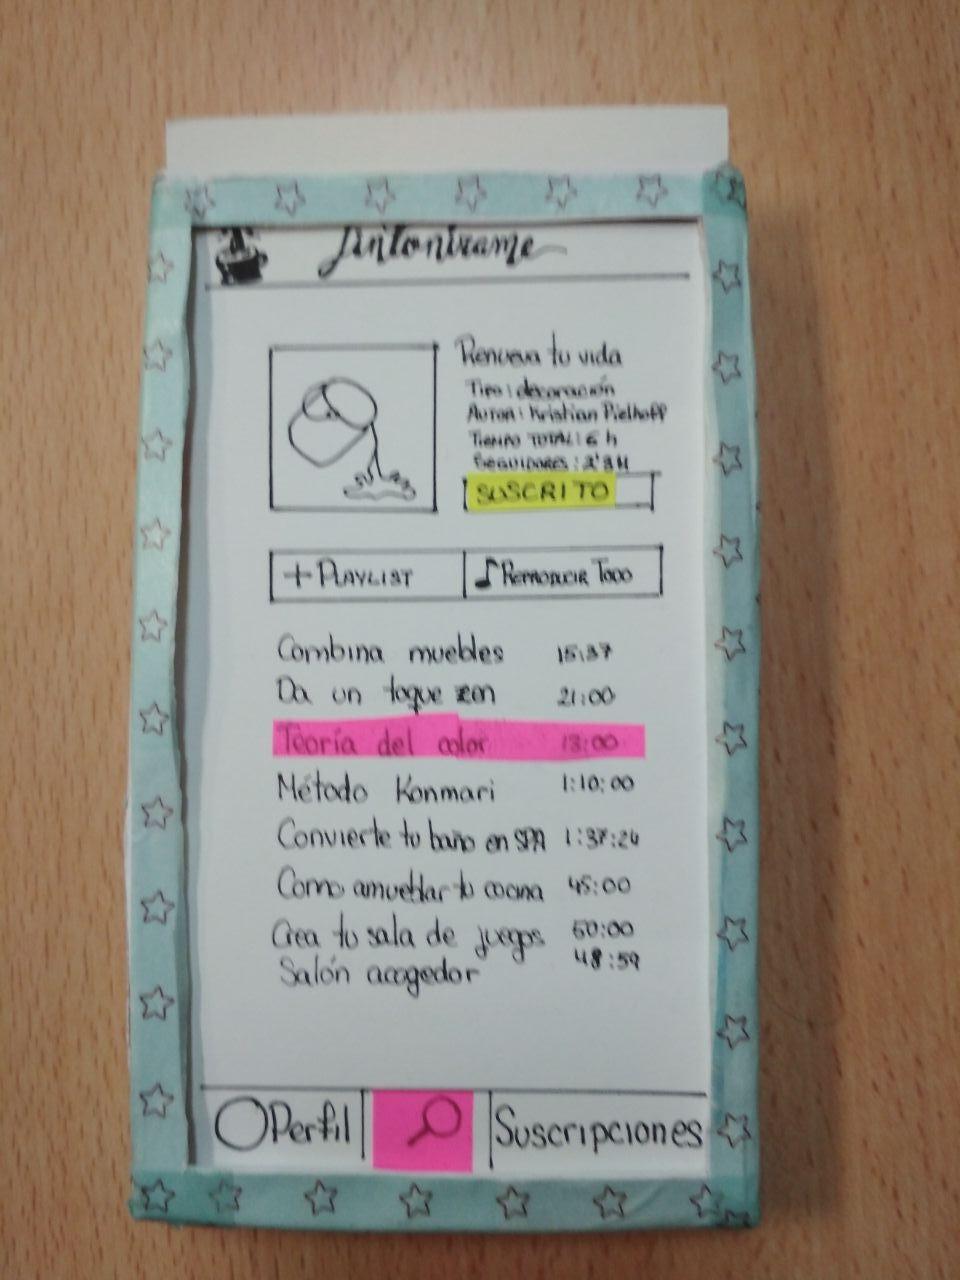 Sintonízame
Renueva tu vida
Tipo: decoración
Autor: Kristian Pielhoff
Tiempo TOTAL: 6 h
Seguidores: 2'3M
SUSCRITO
+ PLAYLIST
REPRODUCIR TODO
Combina muebles 15:37
Da un toque zen 21:00
Teoría del color 13:00
Método Konmari 1:10:00
Convierte tu baño en SPA 1:37:24
Como amueblar tu cocina 45:00
Crea tu sala de juegos 50:00
Salón acogedor 48:59
Perfil
Suscripciones